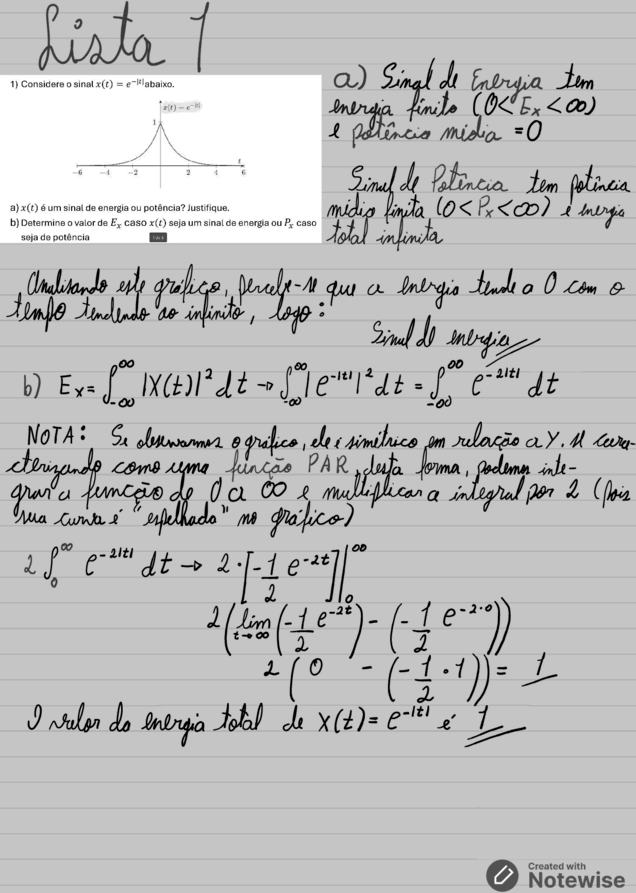 Lista 1
1) Considere o sinal x(t) = e^{-|t|} abaixo.
x(t) = e^{-|t|}
1
t
-6 -4 -2 2 4 6
a) x(t) é um sinal de energia ou potência? Justifique.
b) Determine o valor de E_x caso x(t) seja um sinal de energia ou P_x caso
seja de potência
a) Sinal de Energia tem
energia finita (0 < E_x < ∞)
e potência média = 0
Sinal de Potência tem potência
média finita (0 < P_x < ∞) e energia
total infinita
Analisando este gráfico, percebe-se que a energia tende a 0 com o
tempo tendendo ao infinito, logo:
Sinal de energia
b) E_x = ∫_{-∞}^{∞} |X(t)|² dt → ∫_{-∞}^{∞} |e^{-|t|}|² dt = ∫_{-∞}^{∞} e^{-2|t|} dt
NOTA: Se observarmos o gráfico, ele é simétrico em relação a Y. Se cara-
cterizando como uma função PAR, desta forma, podemos inte-
grar a função de 0 a ∞ e multiplicar a integral por 2 (pois
sua curva é "espelhada" no gráfico)
2 ∫_0^∞ e^{-2|t|} dt → 2 · [-1/2 e^{-2t}] |_0^∞
2 (lim_{t→∞} (-1/2 e^{-2t}) - (-1/2 e^{-2·0}))
2 (0 - (-1/2 · 1)) = 1
O valor da energia total de x(t) = e^{-|t|} é 1
Created with
Notewise